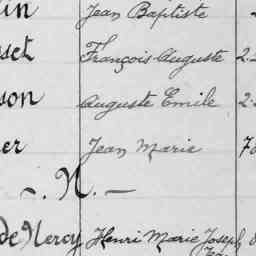 in Jean Baptiste
sset François Auguste 2.
son Auguste Emile 2.
er Jean Marie 7
_ . N . _
de Nercy Henri Marie Joseph
Jean